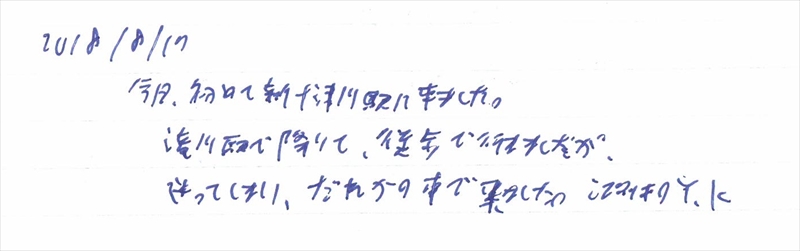 2018/8/17
今日、初めて新十津川駅に来ました。
滝川駅で降りて、徒歩で行きましたが、
迷ってしまい、だれかの車で来ました。